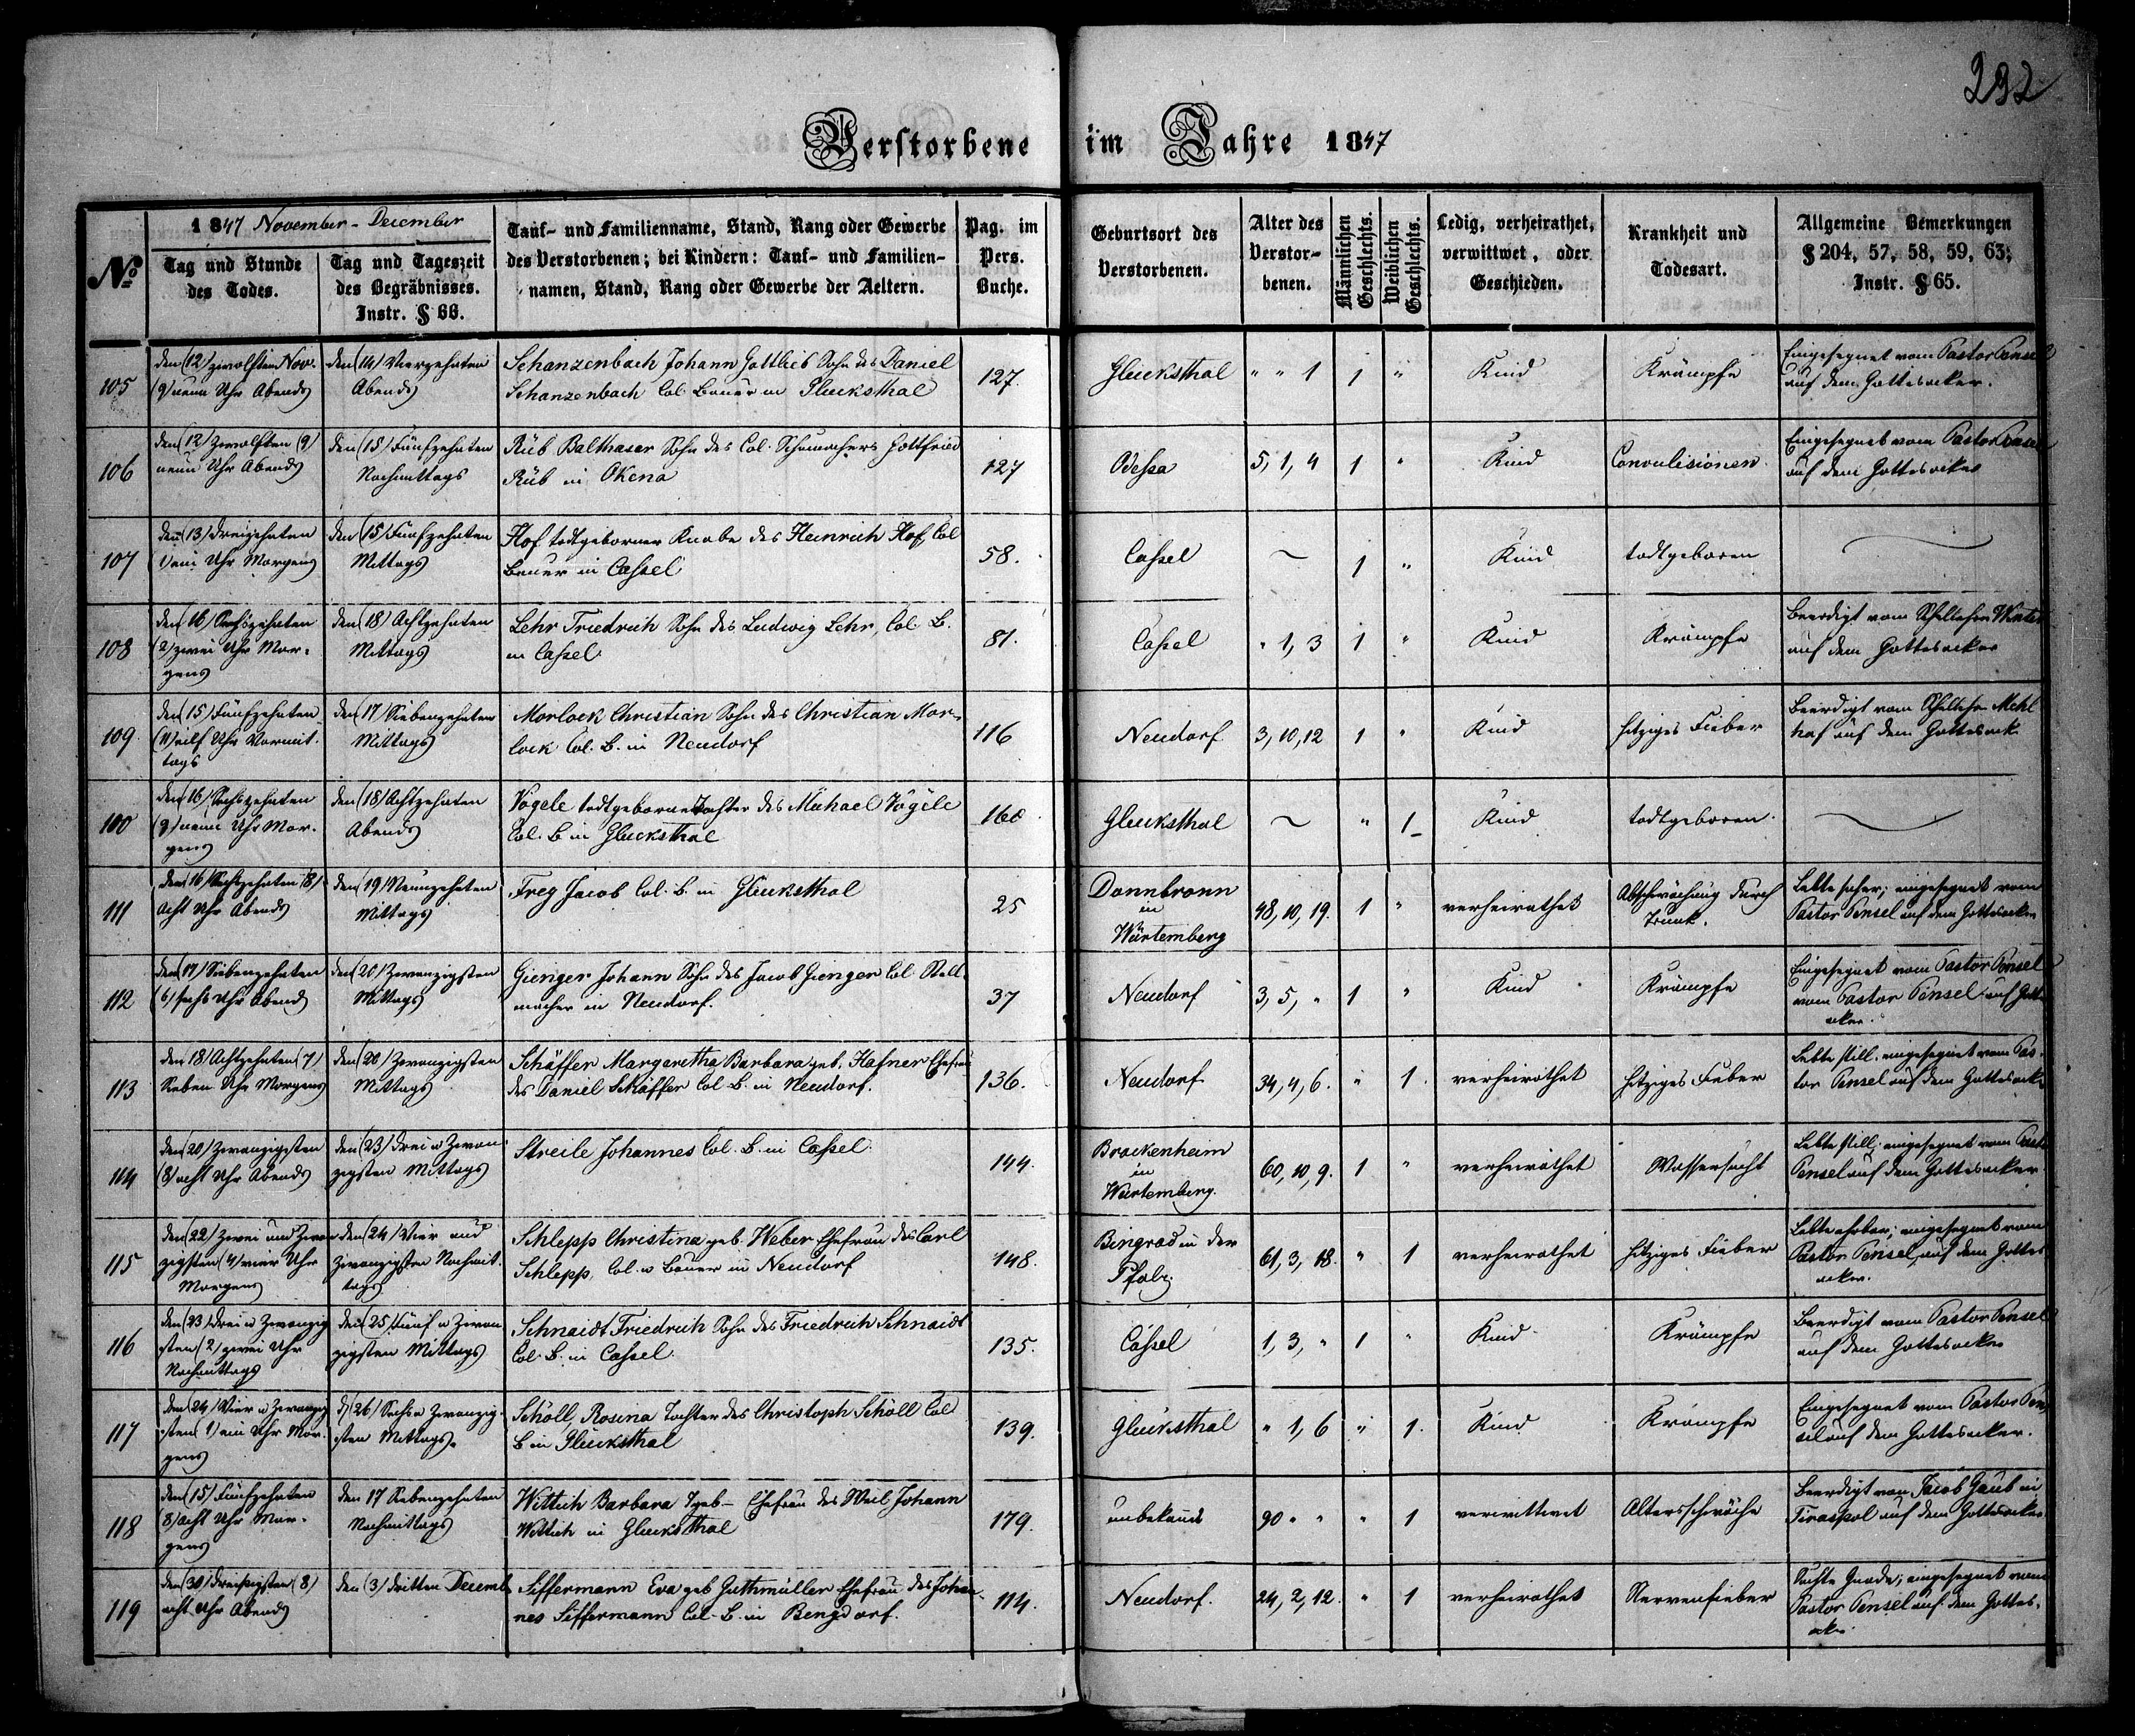 232
Verstorbene im Jahre 1847
№
1847 November - December
Tag und Stunde
des Todes.
Tag und Tageszeit
des Begräbnisses.
Instr. § 66.
Tauf- und Familienname, Stand, Rang oder Gewerbe
des Verstorbenen; bei Kindern: Tauf- und Familien-
namen, Stand, Rang oder Gewerbe der Aeltern.
Pag. im
Pers.
Buche.
Geburtsort des
Verstorbenen.
Alter des
Verstor-
benen.
Männlichen
Geschlechts.
Weiblichen
Geschlechts.
Ledig, verheirathet,
verwittwet, oder
Geschieden.
Krankheit und
Todesart.
Allgemeine Bemerkungen
§ 204, 57, 58, 59, 63;
Instr. § 65.
105
den (12) zwölften Nov.
(9) neun Uhr Abends
den (14) Vierzehnten
Abends
Schanzenbach Johann Gottlieb Sohn des Daniel
Schanzenbach Col. Bauer in Glucksthal
127.
Glucksthal
" " 1
1
"
Kind
Krämpfe
Eingesegnet vom Pastor Pensel
auf dem Gottesacker.
106
den (12) Zwölften (9)
neun Uhr Abends
den (15) Fünfzehnten
Nachmittags
Rüb Balthaser Sohn des Col. Schumachers Gottfried
Rüb in Okena
127
Odessa
5, 1, 4
1
"
Kind
Convulisionen
Eingesegnet vom Pastor Pensel
auf dem Gottesacker
107
den (13) Dreizehnten
(1) ein Uhr Morgens
den (15) Fünfzehnten
Mittags
Hof todtgeborner Knabe des Heinrich Hof Col
Bauer in Cassel
58.
Cassel
~
1
"
Kind
todtgeboren
108
den (16) Sechszehnten
(2) zwei Uhr Mor-
gens
den (18) Achtzehnten
Mittags
Lehr Friedrich Sohn des Ludwig Lehr, Col. B.
in Cassel
81.
Cassel
" 1, 3
1
"
Kind
Krämpfe
Beerdigt vom Schullehrer Winter
auf dem Gottesacker
109.
den (15) Fünfzehnten
(11) eilf Uhr Vormit-
tags
den (17) Siebenzehnten
Mittags
Morlock Christian Sohn des Christian Mor-
lock Col. B. in Neudorf
116
Neudorf
3, 10, 12
1
"
Kind
hitziges Fieber
Beerdigt vom Schullehr. Mehl
haf auf dem Gottesack.
100
den (16) Sechszehnten
(9) neun Uhr Mor-
gens
den (18) Achtzehnten
Abends
Vögele todtgeborne Tochter des Michael Vögele
Col. B in Glucksthal
160
Glucksthal
~
"
1
Kind
todtgeboren
111
den (16) Sechszehnten (8)
Acht Uhr Abends
den (19) Neunzehnten
Mittags
Frey Jacob Col. B. in Glucksthal
25
Donnbronn
in
Würtemberg
48, 10, 19.
1
"
verheirathet
Abschwächung durch
Trunk.
eingesegnet vom
Pastor Pensel auf dem Gottesacker
112
den (17) Siebenzehnten
(6) sechs Uhr Abend
den (20) Zwanzigsten
Mittags
Gienger Johann Sohn des Jacob Gienger Col. Stell-
macher in Neudorf.
37
Neudorf
3, 5, "
1
"
Kind
Krämpfe
Eingesegnet vom Pastor Pensel
vom Pastor Pensel auf Gott
acker.
113
den 18) Achtzehnten (7)
Sieben Uhr Morgens
den (20) Zwanzigsten
Mittags
Schäffer Margaretha Barbara geb. Hafner Ehefrau
des Daniel Schäffer Col. B. in Neudorf.
136.
Neudorf
34, 4, 6.
"
1.
verheirathet
hitziges Fieber
Lebte still. eingesegnet vom Pas-
tor Pensel auf dem Gottesack.
114
den (20) Zwanzigsten
(8) acht Uhr Abends
den (23) Drei u Zwan-
zigsten Mittags
Streile Johannes Col. B. in Cassel.
144.
Brackenheim
in
Würtemberg.
60, 10, 9.
1
"
verheirathet
Wassersucht
Lebte still; eingesegnet vom Pastor
Pensel auf dem Gottesacker
115
den (22) Zwei und Zwan
zigsten (4) vier Uhr
Morgens
den (24) Vier und
Zwanzigsten Nachmit-
tags
Schlepp Christina geb. Weber Ehefrau des Carl
Schlepp, Col. u Bauer in Neudorf
148.
Bingrad in der
Pfalz.
61, 3, 18.
"
1
verheirathet
hitziges Fieber
Lebte ehrbar; eingesegnet vom
Pastor Pensel auf dem Gottes
acker.
116
den (23) Drei u Zwanzig
sten (2) zwei Uhr
Nachmittags
den (25) Fünf u Zwan
zigsten Mittags
Schnaidt Friedrich Sohn des Friedrich Schnaidt
Col. B. in Cassel.
135.
Cassel
1, 3, "
1
"
Kind
Krämpfe
Beerdigt vom Pastor Pensel
auf dem Gottesacker
117
den (24) Vier u Zwanzig
sten (1) ein Uhr Mor-
gens
d (26) Sechs u Zwanzig-
sten Mittags.
Schöll, Rosina Tochter des Christoph Schöll Col
B in Glucksthal
139.
Glucksthal
" 1, 6
"
1.
Kind
Krämpfe
Eingesegnet vom Pastor Pen
sel auf dem Gottesacker.
118
den (15) Fünfzehnten
(8) acht Uhr Mor-
gens
den 17 Siebenzehnten
Nachmittags
Wittich Barbara geb - Ehefrau des Weil Johann
Wittich in Glucksthal
179.
unbekannt
90 " "
"
1
verwittwet
Altersschwäche
Beerdigt von Jacob Gaub in
Tiraspol auf dem Gottesacker
119
den (30) Dreissigsten (8)
acht Uhr Abends
den (3) Dritten Decemb.
Siffermann Eva geb Guthmüller Ehefrau des Johan-
nes Siffermann Col. B. in Bergdorf.
114.
Neudorf.
24, 2, 12.
"
1
verheirathet
Nervenfieber
Suchte Gnade; eingesegnet vom
Pastor Pensel auf dem Gottes-
acker.